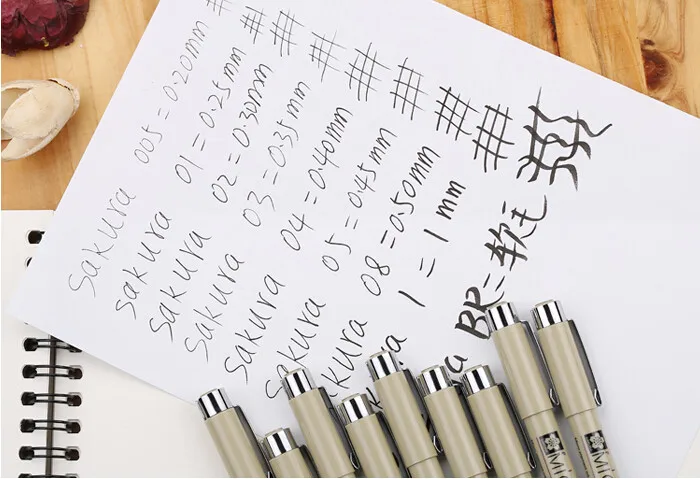 Sakura 005=0.20mm
sakura 01=0.25mm
Sakura 02=0.30mm
Sakura 03=0.35mm
Sakura 04=0.40mm
Sakura 05=0.45mm
kura 08=0.50mm
1=1mm
BR=软毛